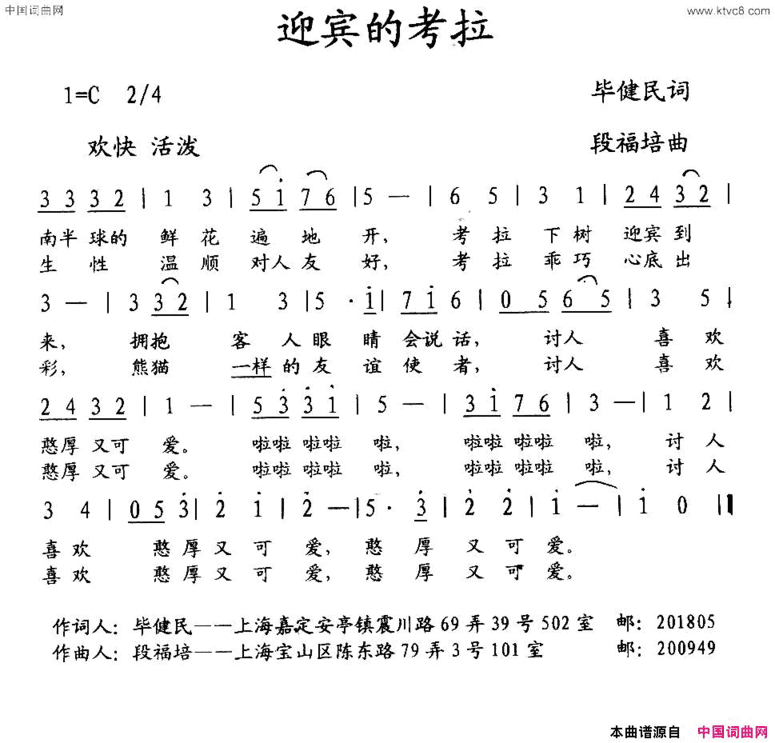 中国词曲网 www.ktvc8.com
迎宾的考拉
1=C 2/4 毕健民词
欢快 活泼 段福培曲
3 3 3 2 | 1 3 | 5 i 7 6 | 5 — | 6 5 | 3 1 | 2 4 3 2 |
南半球的 鲜花 遍地 开, 考拉 下树 迎宾到
生性 温顺 对人友 好, 考拉 乖巧 心底出
3 — | 3 3 2 | 1 3 | 5 · i | 7 i 6 | 0 5 6 5 | 3 5 |
来, 拥抱 客人眼 睛会说话, 讨人 喜欢
彩, 熊猫 一样的友 谊使者, 讨人 喜欢
2 4 3 2 | 1 — | 5 3 3 1 | 5 — | 3 i 7 6 | 3 — | 1 2 |
憨厚又可 爱。 啦啦啦啦 啦, 啦啦啦啦 啦, 讨人
憨厚又可 爱。 啦啦啦啦 啦, 啦啦啦啦 啦, 讨人
3 4 | 0 5 3 | 2 i | 2 — | 5 · 3 | 2 2 | i — | i 0 ||
喜欢 憨厚又可 爱, 憨厚又可 爱。
喜欢 憨厚又可 爱, 憨厚又可 爱。
作词人：毕健民——上海嘉定安亭镇震川路69弄39号502室 邮：201805
作曲人：段福培——上海宝山区陈东路79弄3号101室 邮：200949
本曲谱源自 中国词曲网